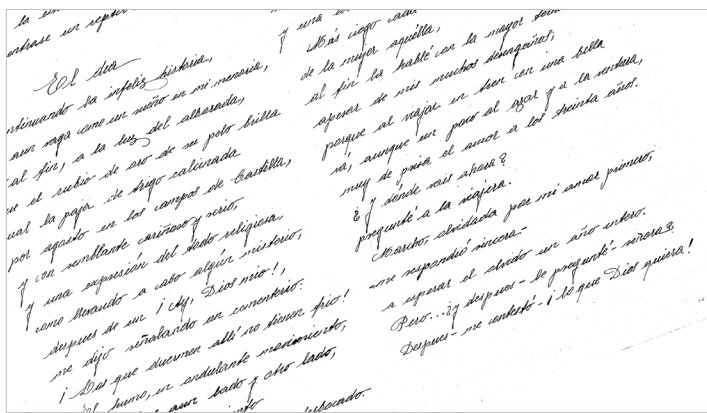 la
entrase un
El dia
ntinuando la infeliz historia,
aun vaga como un sueño en mi memoria,
al fin, a la luz del alborada,
ue el rubio de oro de su pelo brilla
ual la paja de trigo calcinada
por agosto en los campos de Castilla,
y con semblante cariñoso y serio,
y una expresión del todo religiosa,
como llevando a cabo algún misterio,
despues de un ¡Ay, Dios mio!,
me dijo señalando un cementerio:
¡Los que duermen allí no tienen frio!
El humo, en ondulante movimiento,
a un lado y otro lado,
desbocado.
y una
Más ciego cada
de la mujer aquélla,
al fin la hablé con la mayor
apesar de mis muchos desengaños;
porque al viajar en tren con una bella
vá, aunque un poco al azar y a la ventura,
muy de prisa el amor a los treinta años.
¿Y dónde vais ahora?
pregunté a la viajera.
Marcho, olvidada por mi amor primero,
-me respondió sincera-
a esperar el olvido un año entero.
Pero...¿y despues- le pregunté- señora?
Despues- me contestó- ¡lo que Dios quiera!